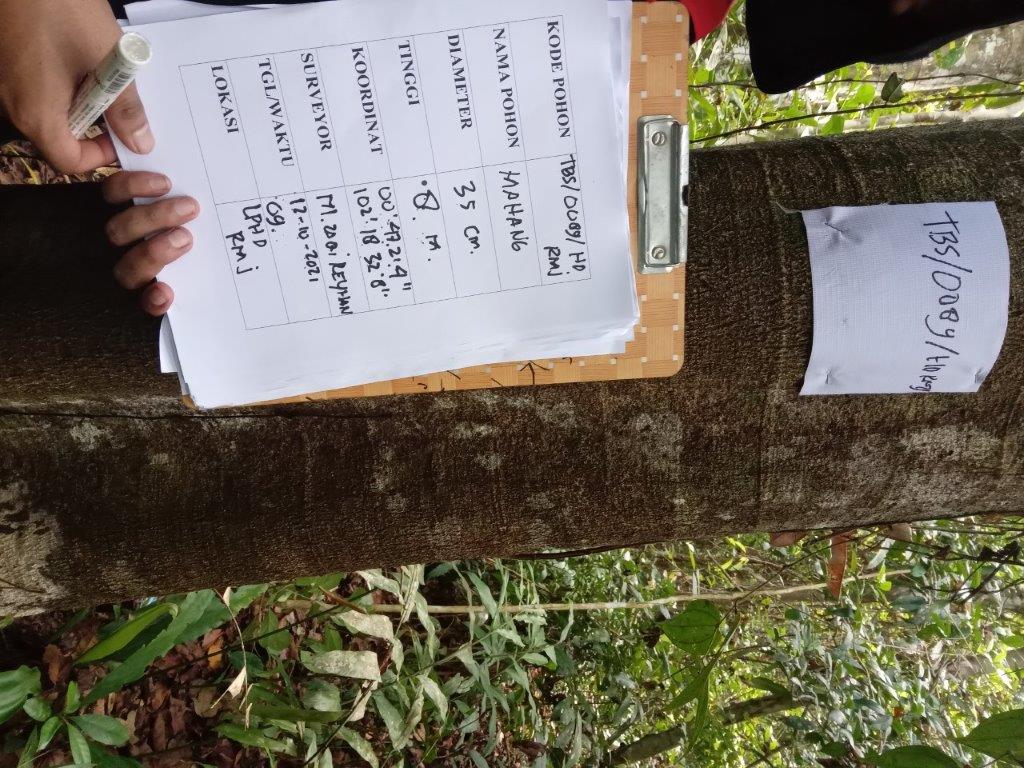 TBS/0089/HD RMJ
KODE POHON TBS/0089/HD
RMJ
NAMA POHON MAHANG
DIAMETER 35 cm.
TINGGI 8. M.
KOORDINAT 00' 47. 2' 4"
102' 18 32' 8"
SURVEYOR M. ZODI REYHAN
TGL/WAKTU 12-10-2021
09.
LOKASI LPHD
RMJ